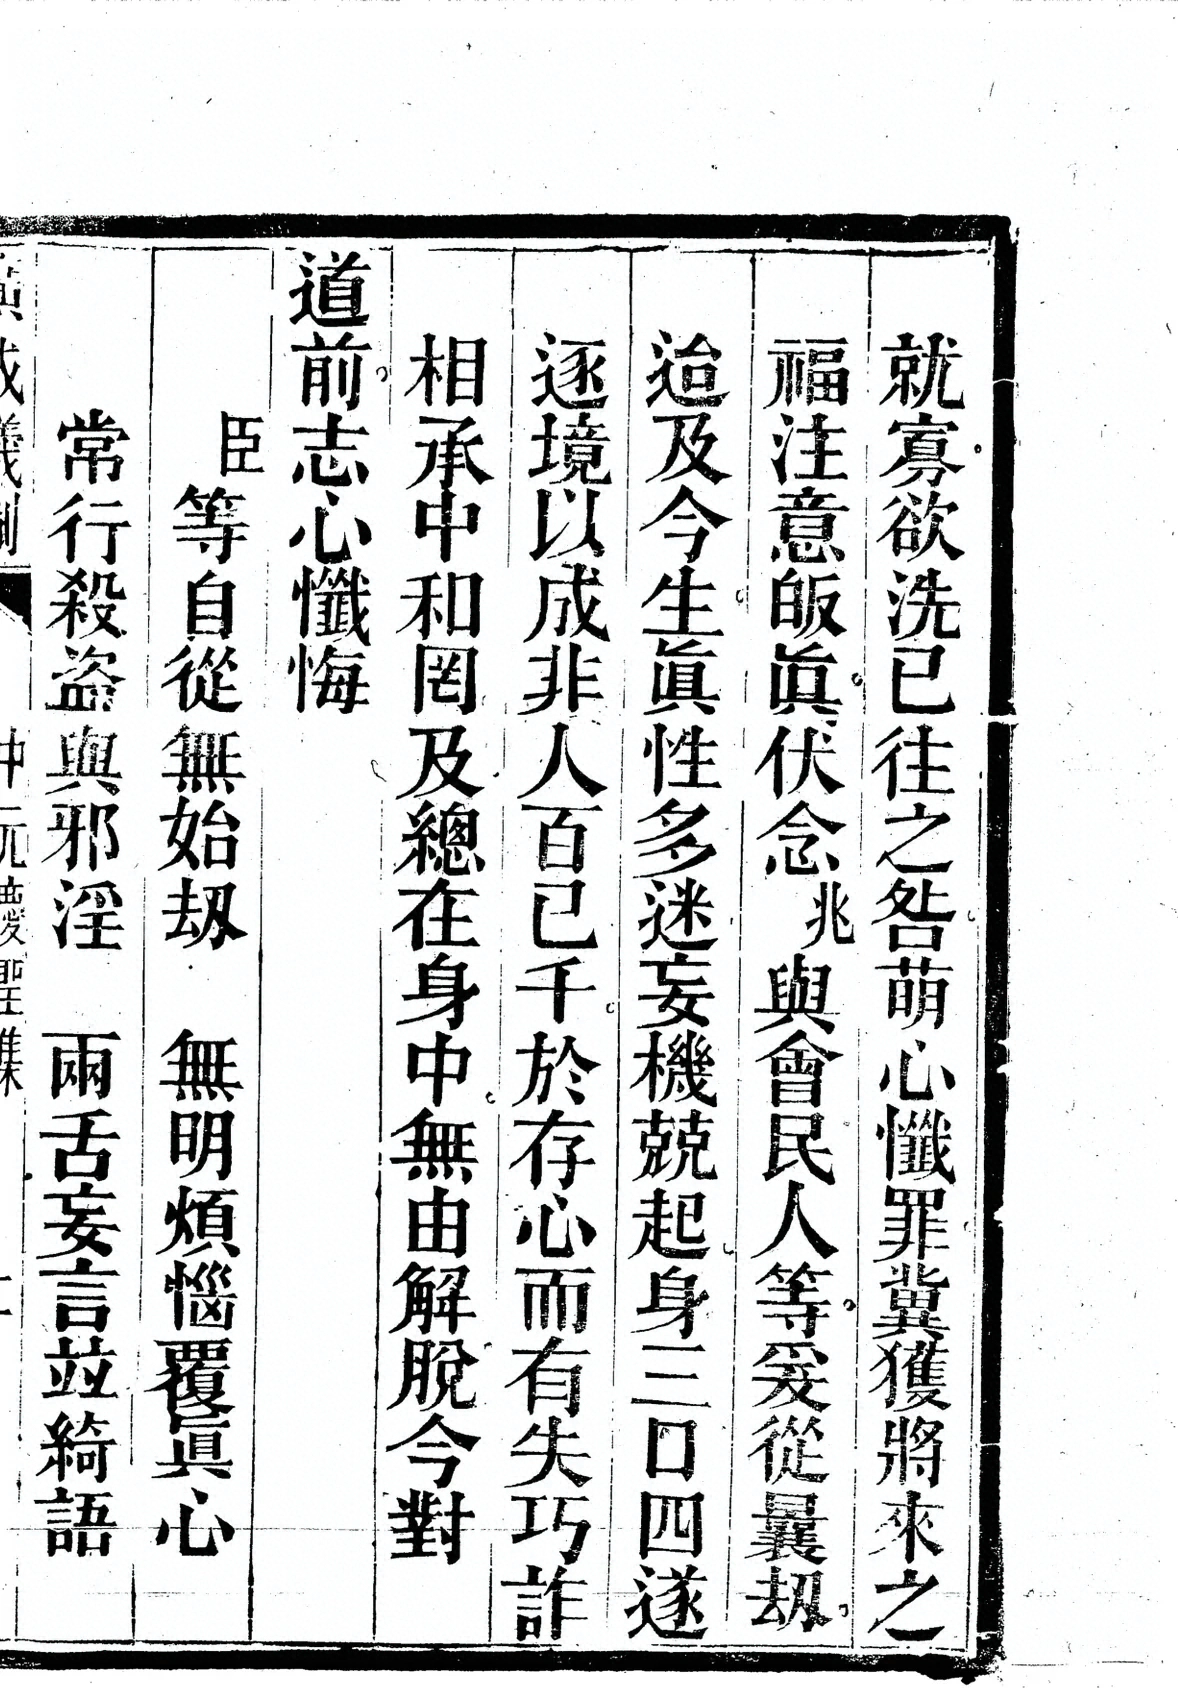 就寡欲洗已往之咎萌心懺罪兾獲將來之
福注意皈眞伏念兆與會民人等爰從曩刼
迨及今生眞性多迷妄機兢起身三口四遂
逐境以成非人百已千於存心而有失巧詐
相承中和罔及總在身中無由解脫今對
道前志心懺悔
臣等自從無始刼　無明煩惱覆眞心
常行殺盜與邪淫　兩舌妄言並綺語
廣成儀制　中元慶聖集